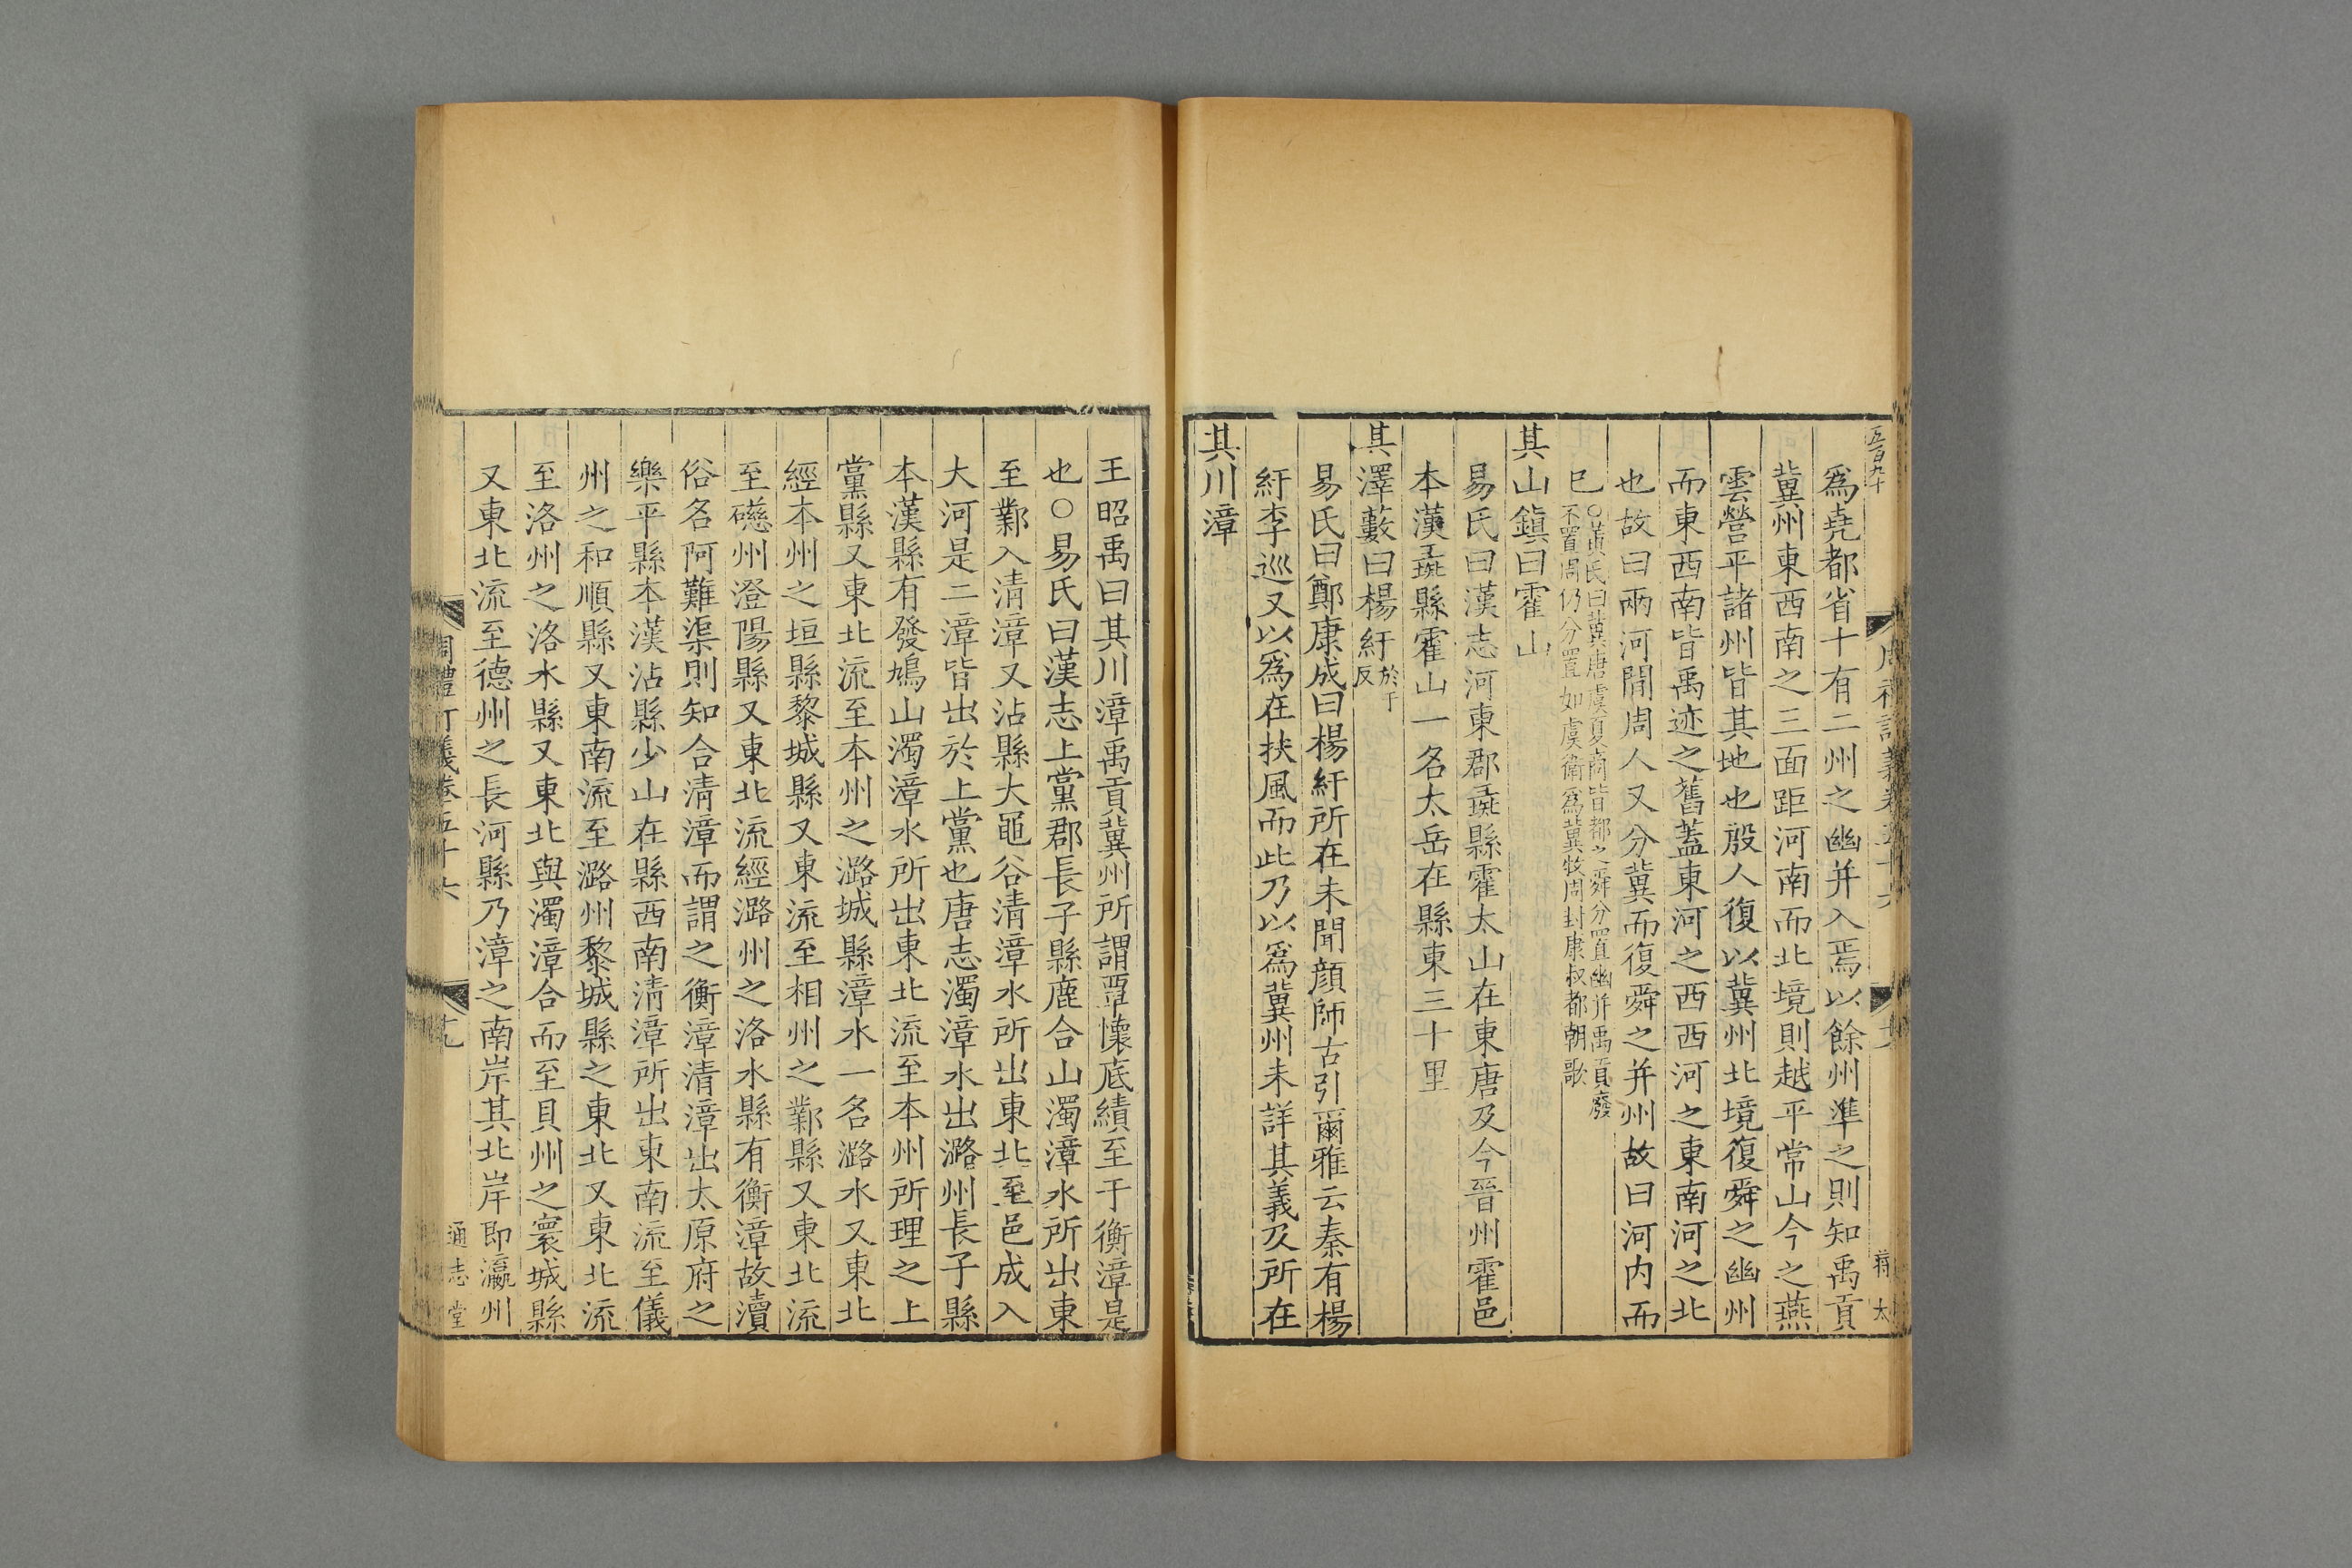 五百九十
為堯都省十有二州之幽并入焉以餘州準之則知禹貢
冀州東西南之三面距河南而北境則越平常山今之燕
雲營平諸州皆其地也殷人復以冀州北境復舜之幽州
而東西南皆禹迹之舊蓋東河之西西河之東南河之北
也故曰兩河間周人又分冀而復舜之并州故曰河内而
已○黃氏曰冀唐虞夏商皆都之舜分置幽并禹貢廢
不置周仍分置如虞衛為冀牧周封康叔都朝歌
其山鎮曰霍山
易氏曰漢志河東郡彘縣霍太山在東唐及今晉州霍邑
本漢彘縣霍山一名太岳在縣東三十里
其澤藪曰楊紆於于反
易氏曰鄭康成曰楊紆所在未聞顔師古引爾雅云秦有楊
紆李巡又以為在扶風而此乃以為冀州未詳其義及所在
其川漳
王昭禹曰其川漳禹貢冀州所謂覃懷底績至于衡漳是
也○易氏曰漢志上黨郡長子縣鹿合山濁漳水所出東
至鄴入清漳又沾縣大黽谷清漳水所出東北至邑成入
大河是二漳皆出於上黨也唐志濁漳水出潞州長子縣
本漢縣有發鳩山濁漳水所出東北流至本州所理之上
黨縣又東北流至本州之潞城縣漳水一名潞水又東北
經本州之垣縣黎城縣又東流至相州之鄴縣又東北流
至礠州澄陽縣又東北流經潞州之洛水縣有衡漳故瀆
俗名阿難渠則知合清漳而謂之衡漳清漳出太原府之
樂平縣本漢沾縣少山在縣西南清漳所出東南流至儀
州之和順縣又東南流至潞州黎城縣之東北又東北流
至洛州之洛水縣又東北與濁漳合而至貝州之寰城縣
又東北流至德州之長河縣乃漳之南岸其北岸即瀛州
周禮訂義卷五十六
通志堂